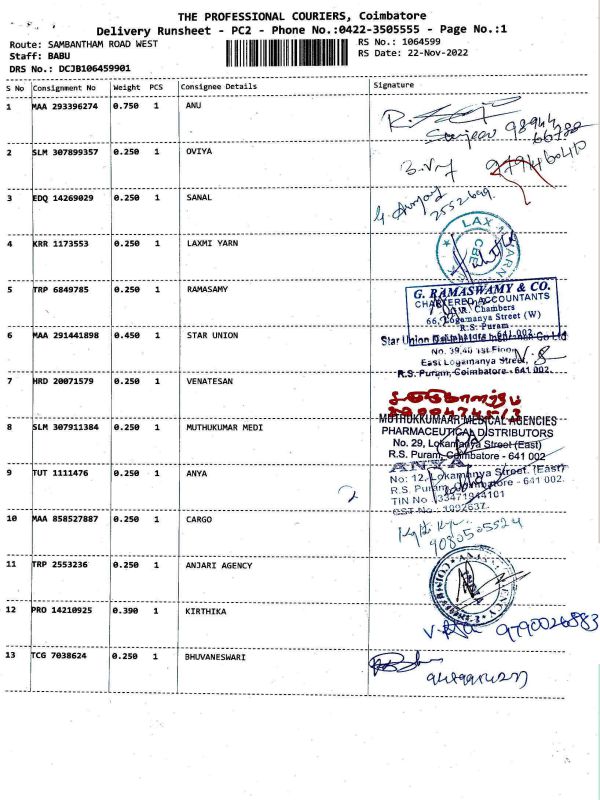 THE PROFESSIONAL COURIERS, Coimbatore
Delivery Runsheet - PC2 - Phone No.:0422-3505555 - Page No.:1
Route: SAMBANTHAM ROAD WEST
RS No.: 1064599
Staff: BABU
RS Date: 22-Nov-2022
DRS No.: DCJB106459901
S No Consignment No Weight PCS Consignee Details Signature
1 MAA 293396274 0.750 1 ANU
98944
66788
2 SLM 307899357 0.250 1 OVIYA
3 EDQ 14269029 0.250 1 SANAL
2552699
4 KRR 1173553 0.250 1 LAXMI YARN
LAX YARN
CBE
5 TRP 6849785 0.250 1 RAMASAMY
G. RAMASWAMY & CO.
CHARTERED ACCOUNTANTS
Chambers
66, Logamanya Street (W)
R.S. Puram
641 002.
6 MAA 291441898 0.450 1 STAR UNION
Star Union
No. 39,40 1st Floor
East Logamanya Street,
R.S. Puram, Coimbatore - 641 002.
7 HRD 20071579 0.250 1 VENATESAN
8 SLM 307911384 0.250 1 MUTHUKUMAR MEDI
MUTHUKKUMAAR MEDICAL AGENCIES
PHARMACEUTICAL DISTRIBUTORS
No. 29, Lokamanya Street (East)
R.S. Puram, Coimbatore - 641 002
9 TUT 1111476 0.250 1 ANYA
ANYA
No: 12, Lokamanya Street. (East)
R.S. Puram, Coimbatore - 641 002.
TIN No 33471944101
CST No. 1092637
2
10 MAA 858527887 0.250 1 CARGO
9080505524
11 TRP 2553236 0.250 1 ANJARI AGENCY
12 PRO 14210925 0.390 1 KIRTHIKA
9790026883
13 TCG 7038624 0.250 1 BHUVANESWARI